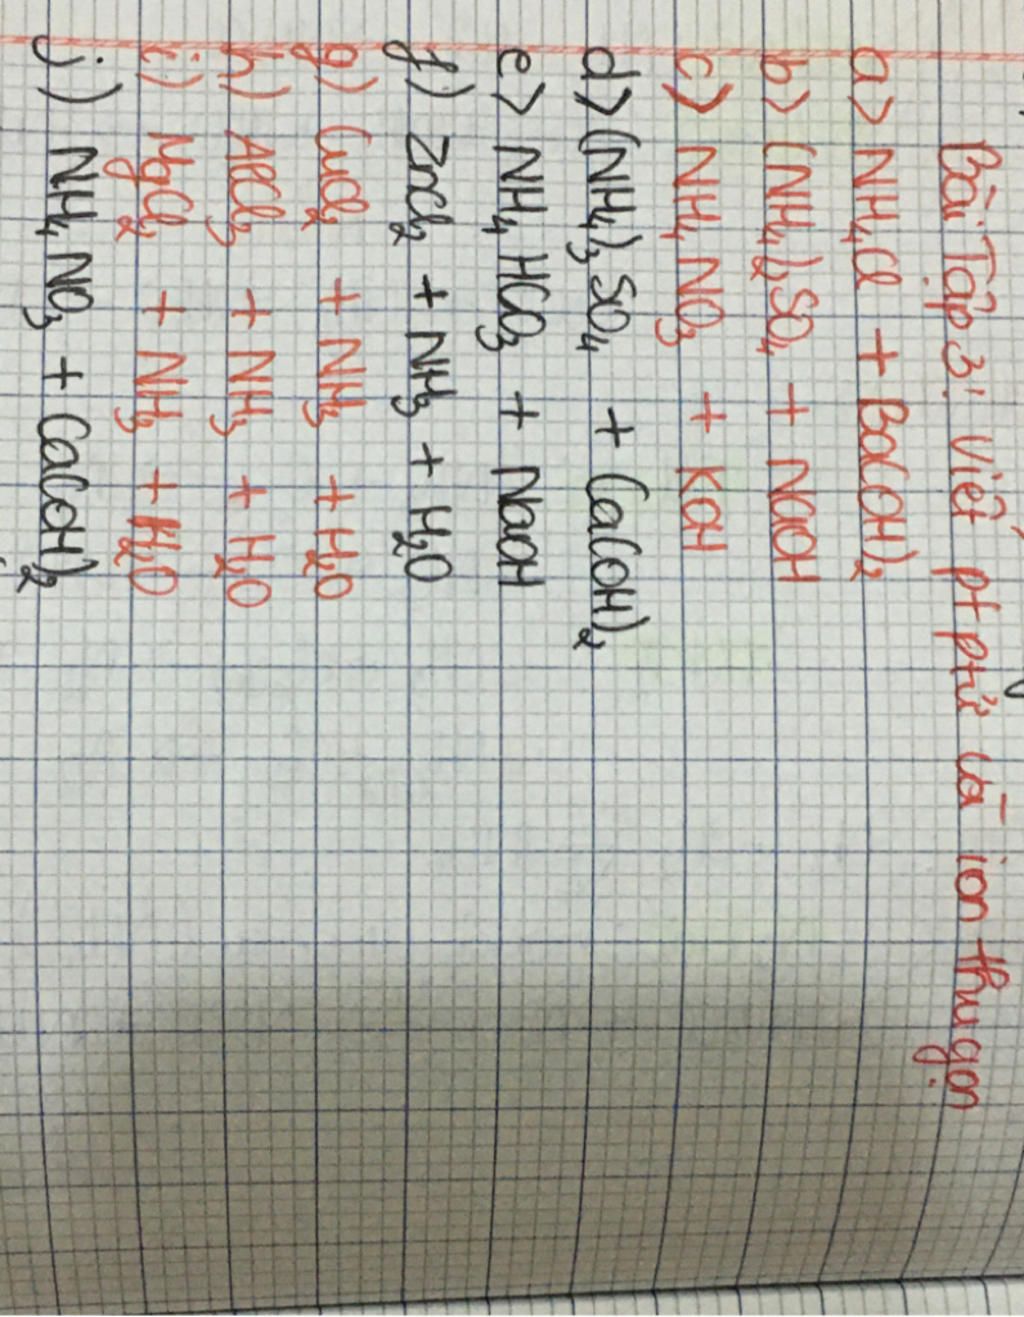 Bài Tập 3: Viết pt ptử và ion thu gọn
a> NH₄Cl + Ba(OH)₂
b> (NH₄)₂SO₄ + NaOH
c> NH₄NO₃ + KOH
d> (NH₄)₃SO₄ + Ca(OH)₂
e> NH₄HCO₃ + NaOH
f) ZnCl₂ + NH₃ + H₂O
g) CuCl₂ + NH₃ + H₂O
h) AlCl₃ + NH₃ + H₂O
i) MgCl₂ + NH₃ + H₂O
j) NH₄NO₃ + Ca(OH)₂